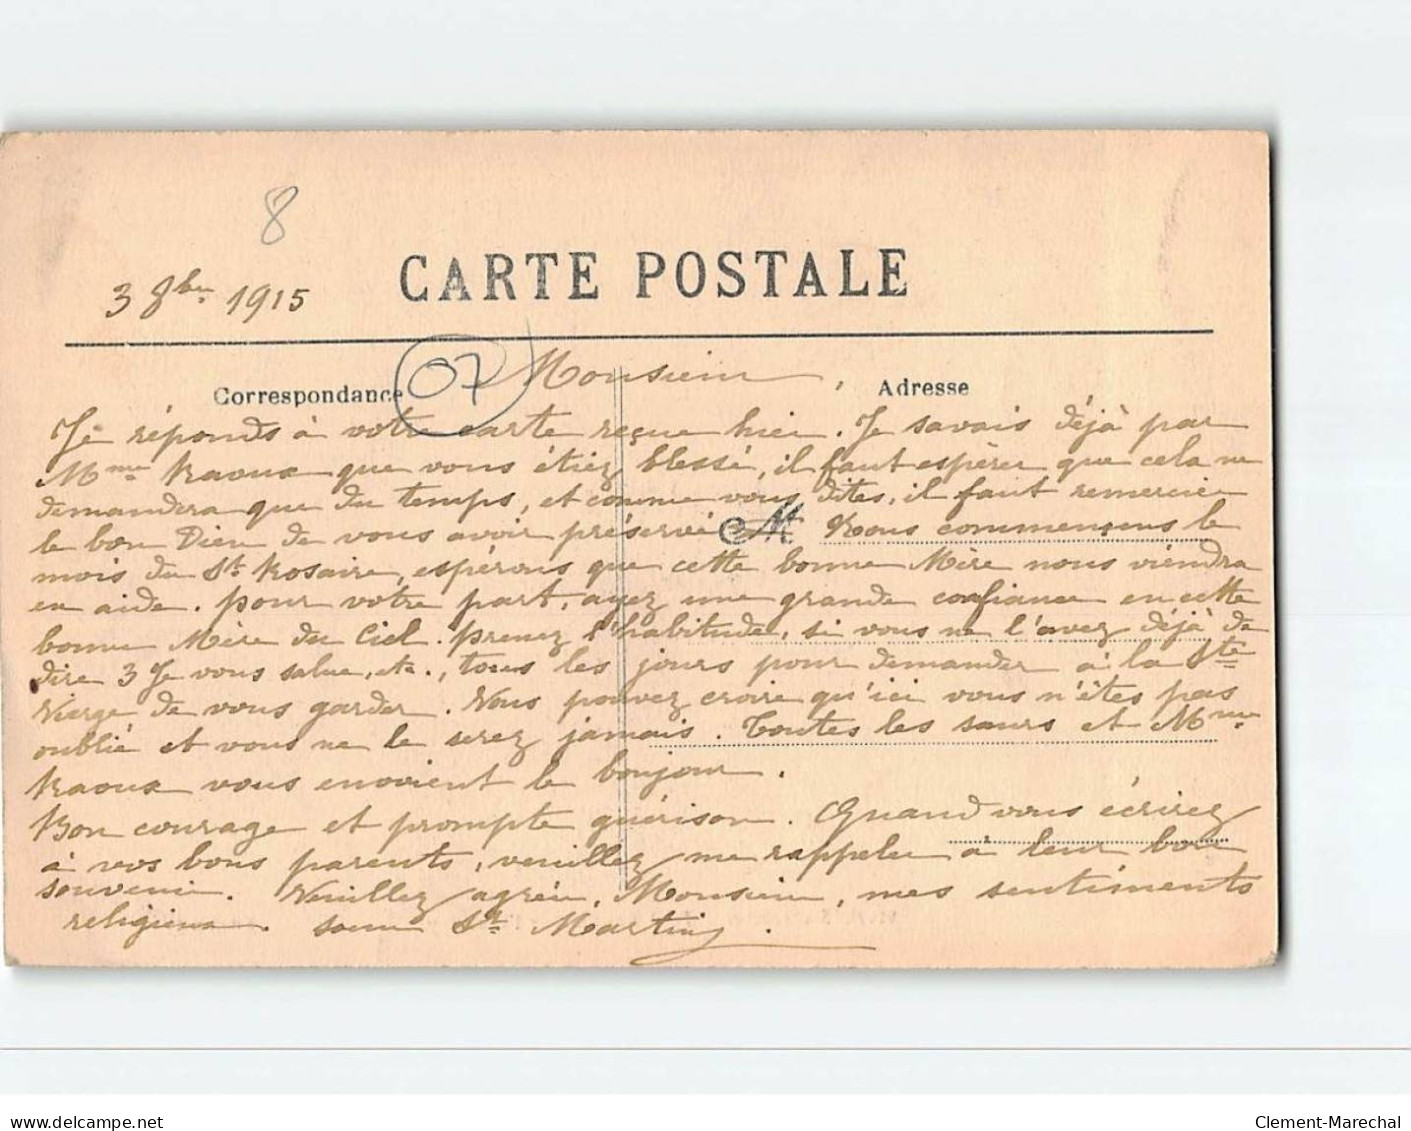 8
CARTE POSTALE
3 8bre 1915
Correspondance
07
Monsieur,
Adresse
Je réponds à votre carte reçue hier. Je savais déjà par
Mme Raoux que vous étiez blessé, il faut espérer que cela ne
demandera que du temps, et comme vous dites, il faut remercier
le bon Dieu de vous avoir préservé. Nous commençons le
mois du St Rosaire, espérons que cette bonne Mère nous viendra
en aide. Pour votre part, ayez une grande confiance en cette
bonne Mère du Ciel. Prenez l'habitude, si vous ne l'avez déjà, de
dire 3 Je vous salue, etc., tous les jours pour demander à la Ste
Vierge de vous garder. Vous pouvez croire qu'ici vous n'êtes pas
oublié et vous ne le serez jamais. Toutes les sœurs et Mme
Raoux vous envoient le bonjour.
Bon courage et prompte guérison. Quand vous écrirez
à vos bons parents, veuillez me rappeler à leur bon
souvenir. Veuillez agréer, Monsieur, mes sentiments
religieux. sœur St Martin.
delcampe.net
Clement-Marechal